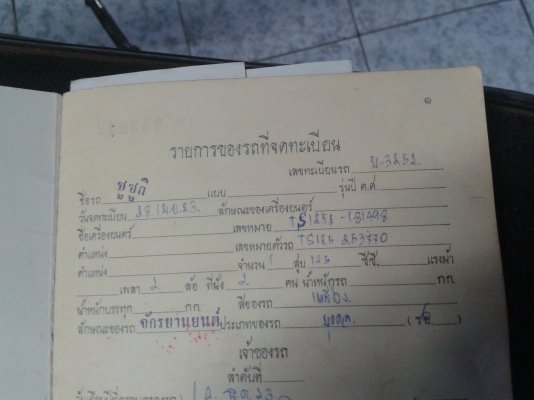 ๑
รายการของรถที่จดทะเบียน
เลขทะเบียนรถ น-3252
ชื่อรถ ซูซูกิ แบบ รุ่นปี ค.ศ.
วันจดทะเบียน 28 เม.ย.23. ลักษณะของเครื่องยนตร์
ชื่อเครื่องยนตร์ หมายเลข TS1252-131498
ตำแหน่ง เลขหมายตัวรถ TS125 253770
ตำแหน่ง จำนวน 1 สูบ 125 ซี.ซี. แรงม้า
เพลา 2 ล้อ ที่นั่ง 2. คน น้ำหนักรถ กก
น้ำหนักบรรทุก กก สีของรถ เหลือง.
ลักษณะของรถ จักรยานยนต์ ประเภทของรถ
เจ้าของรถ
ลำดับที่